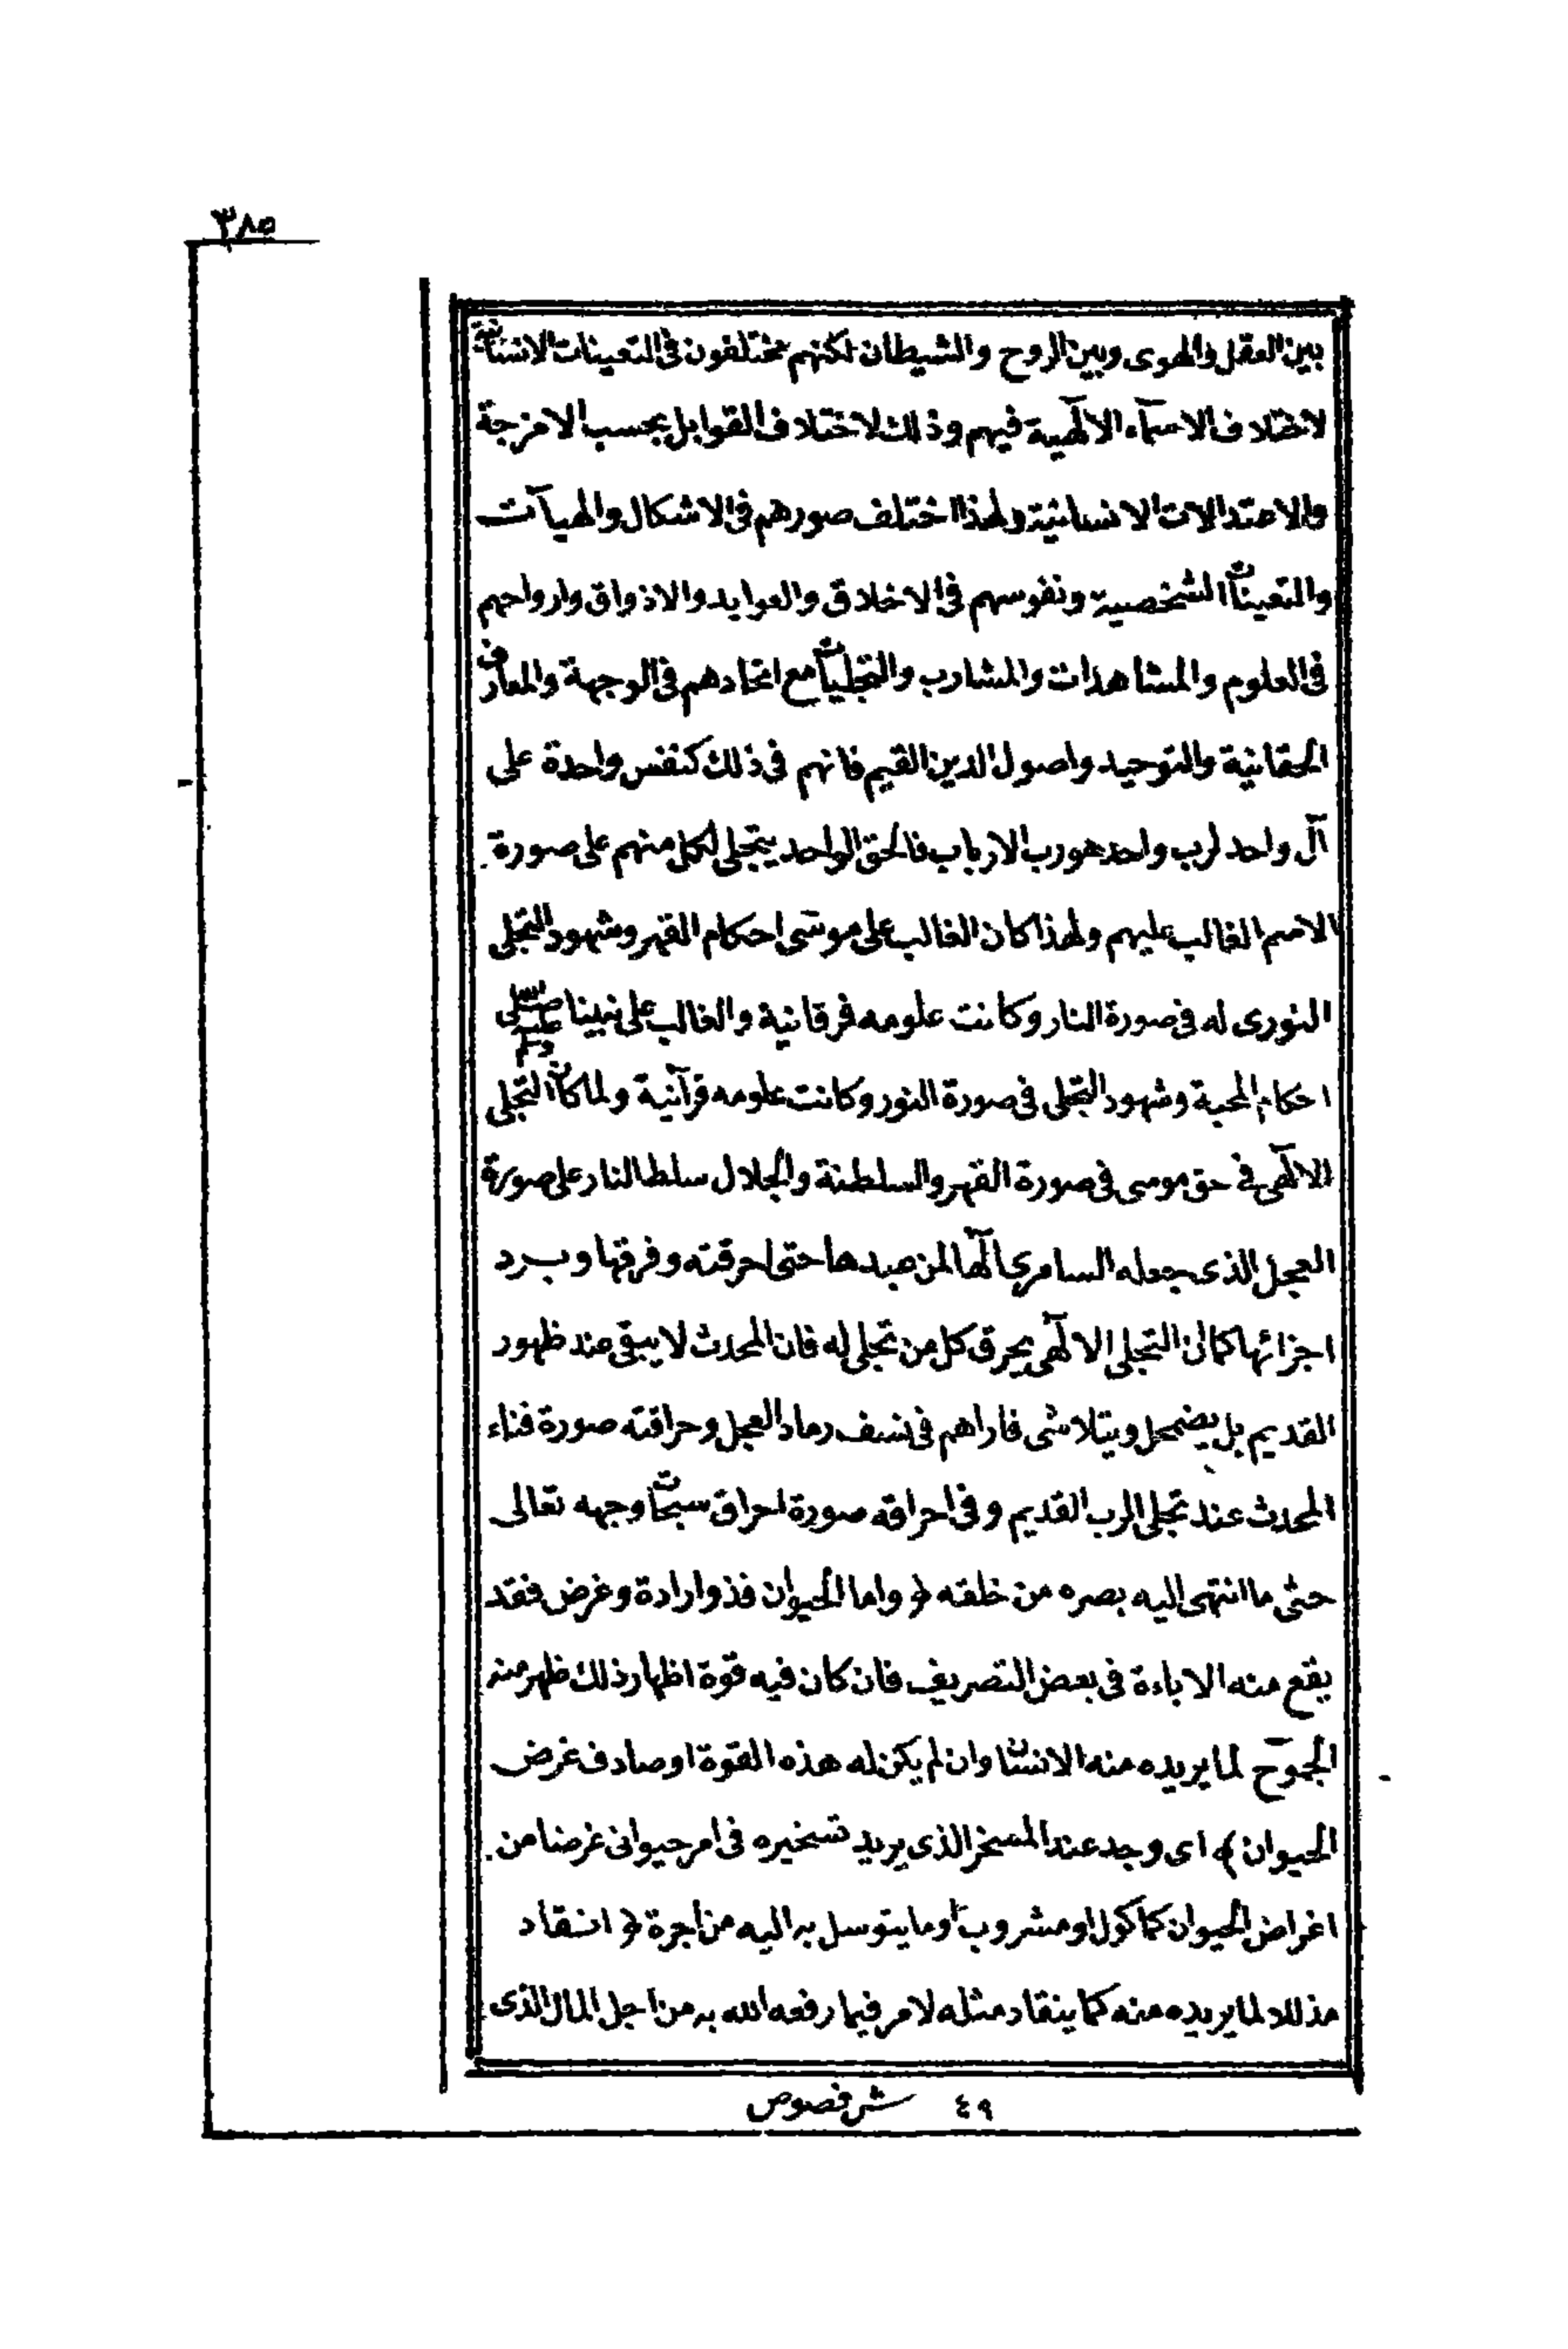 ٣٨٥
بين العقل والهوى وبين الروح والشيطان لكنهم مختلفون فى التعينات الانسانية
لاختلاف الاسمآء الالٓهية فيهم وذلك لاختلاف القوابل بحسب الامزجة
والاعتدالات الانسانية ولهذا اختلف صورهم فى الاشكال والهيآت
والتعينات الشخصية ونفوسهم فى الاخلاق والعوايد والاذواق وارواحهم
فى العلوم والمشاهدات والمشارب والتجليات مع اتحادهم فى الوجهة والمعارف
الحقانية والتوحيد واصول الدين القيم فانهم فى ذلك كنفس واحدة على
آلٓ واحد لرب واحد هو رب الارباب فالحق الواحد يتجلى لكل منهم على صورة
الاسم الغالب عليهم ولهذا كان الغالب على موسى احكام القهر وشهود التجلى
النورى له فى صورة النار وكانت علومه فرقانية والغالب على نبينا صلى الله عليه وسلم
احكام المحبة وشهود التجلى فى صورة النور وكانت علومه قرآنية ولما كان التجلى
الالٓهى فى حق موسى فى صورة القهر والسلطنة والجلال سلط النار على صورة
العجل الذى جعله السامرى الٓها لمن عبدها حتى احرقته وفرقها وبرد
اجزائها كما ان التجلى الالٓهى يحرق كل من تجلى له فان المحدث لا يبقى عند ظهور
القديم بل يضمحل ويتلاشى فاراهم فى نسف رماد العجل وحراقته صورة فناء
المحدث عند تجلى الرب القديم وفى احراقه صورة احراق سبحات وجهه تعالى
حتى ما انتهى اليه بصره من خلقه ﴿ واما الحيوان فذو ارادة وغرض فقد
يقع منه الاباءة فى بعض التصريف فان كان فيه قوة اظهار ذلك ظهر منه
الجموح لما يريده منه الانسان وان لم يكن له هذه القوة او صادف غرض
الحيوان ﴾ اى وجد عند المسخر الذى يريد تسخيره فى امر حيوانى غرضا من
اغراض الحيوان كماكول او مشروب او ما يتوسل به اليه من اجرة ﴿ انقاد
مذللا لما يريده منه كما ينقاد مثله لامر فيما رفعه الله به من اجل المال الذى
٤٩ ش فصوص